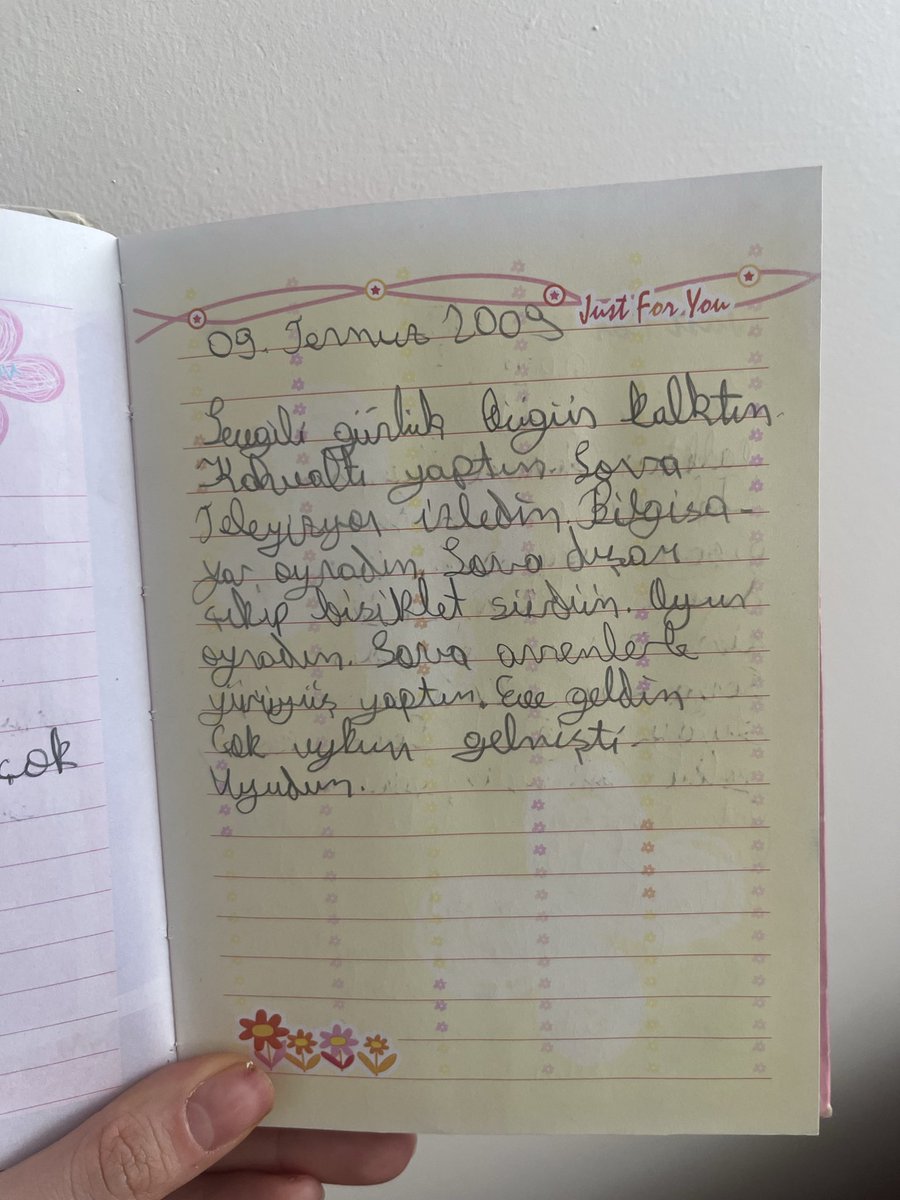 çok
Just For You
09. Temmuz 2009
Sevgili günlük bugün kalktım.
Kahvaltı yaptım. Sonra
Televizyon izledim. Bilgisa-
yar oynadım. Sonra dışarı
çıkıp bisiklet sürdüm. Oyun
oynadım. Sonra annemlerle
yürüyüş yaptım. Eve geldim.
Çok uykum gelmişti.
Uyudum.